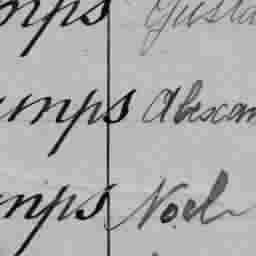 mps Gusta
mps Alexan
mps Noel